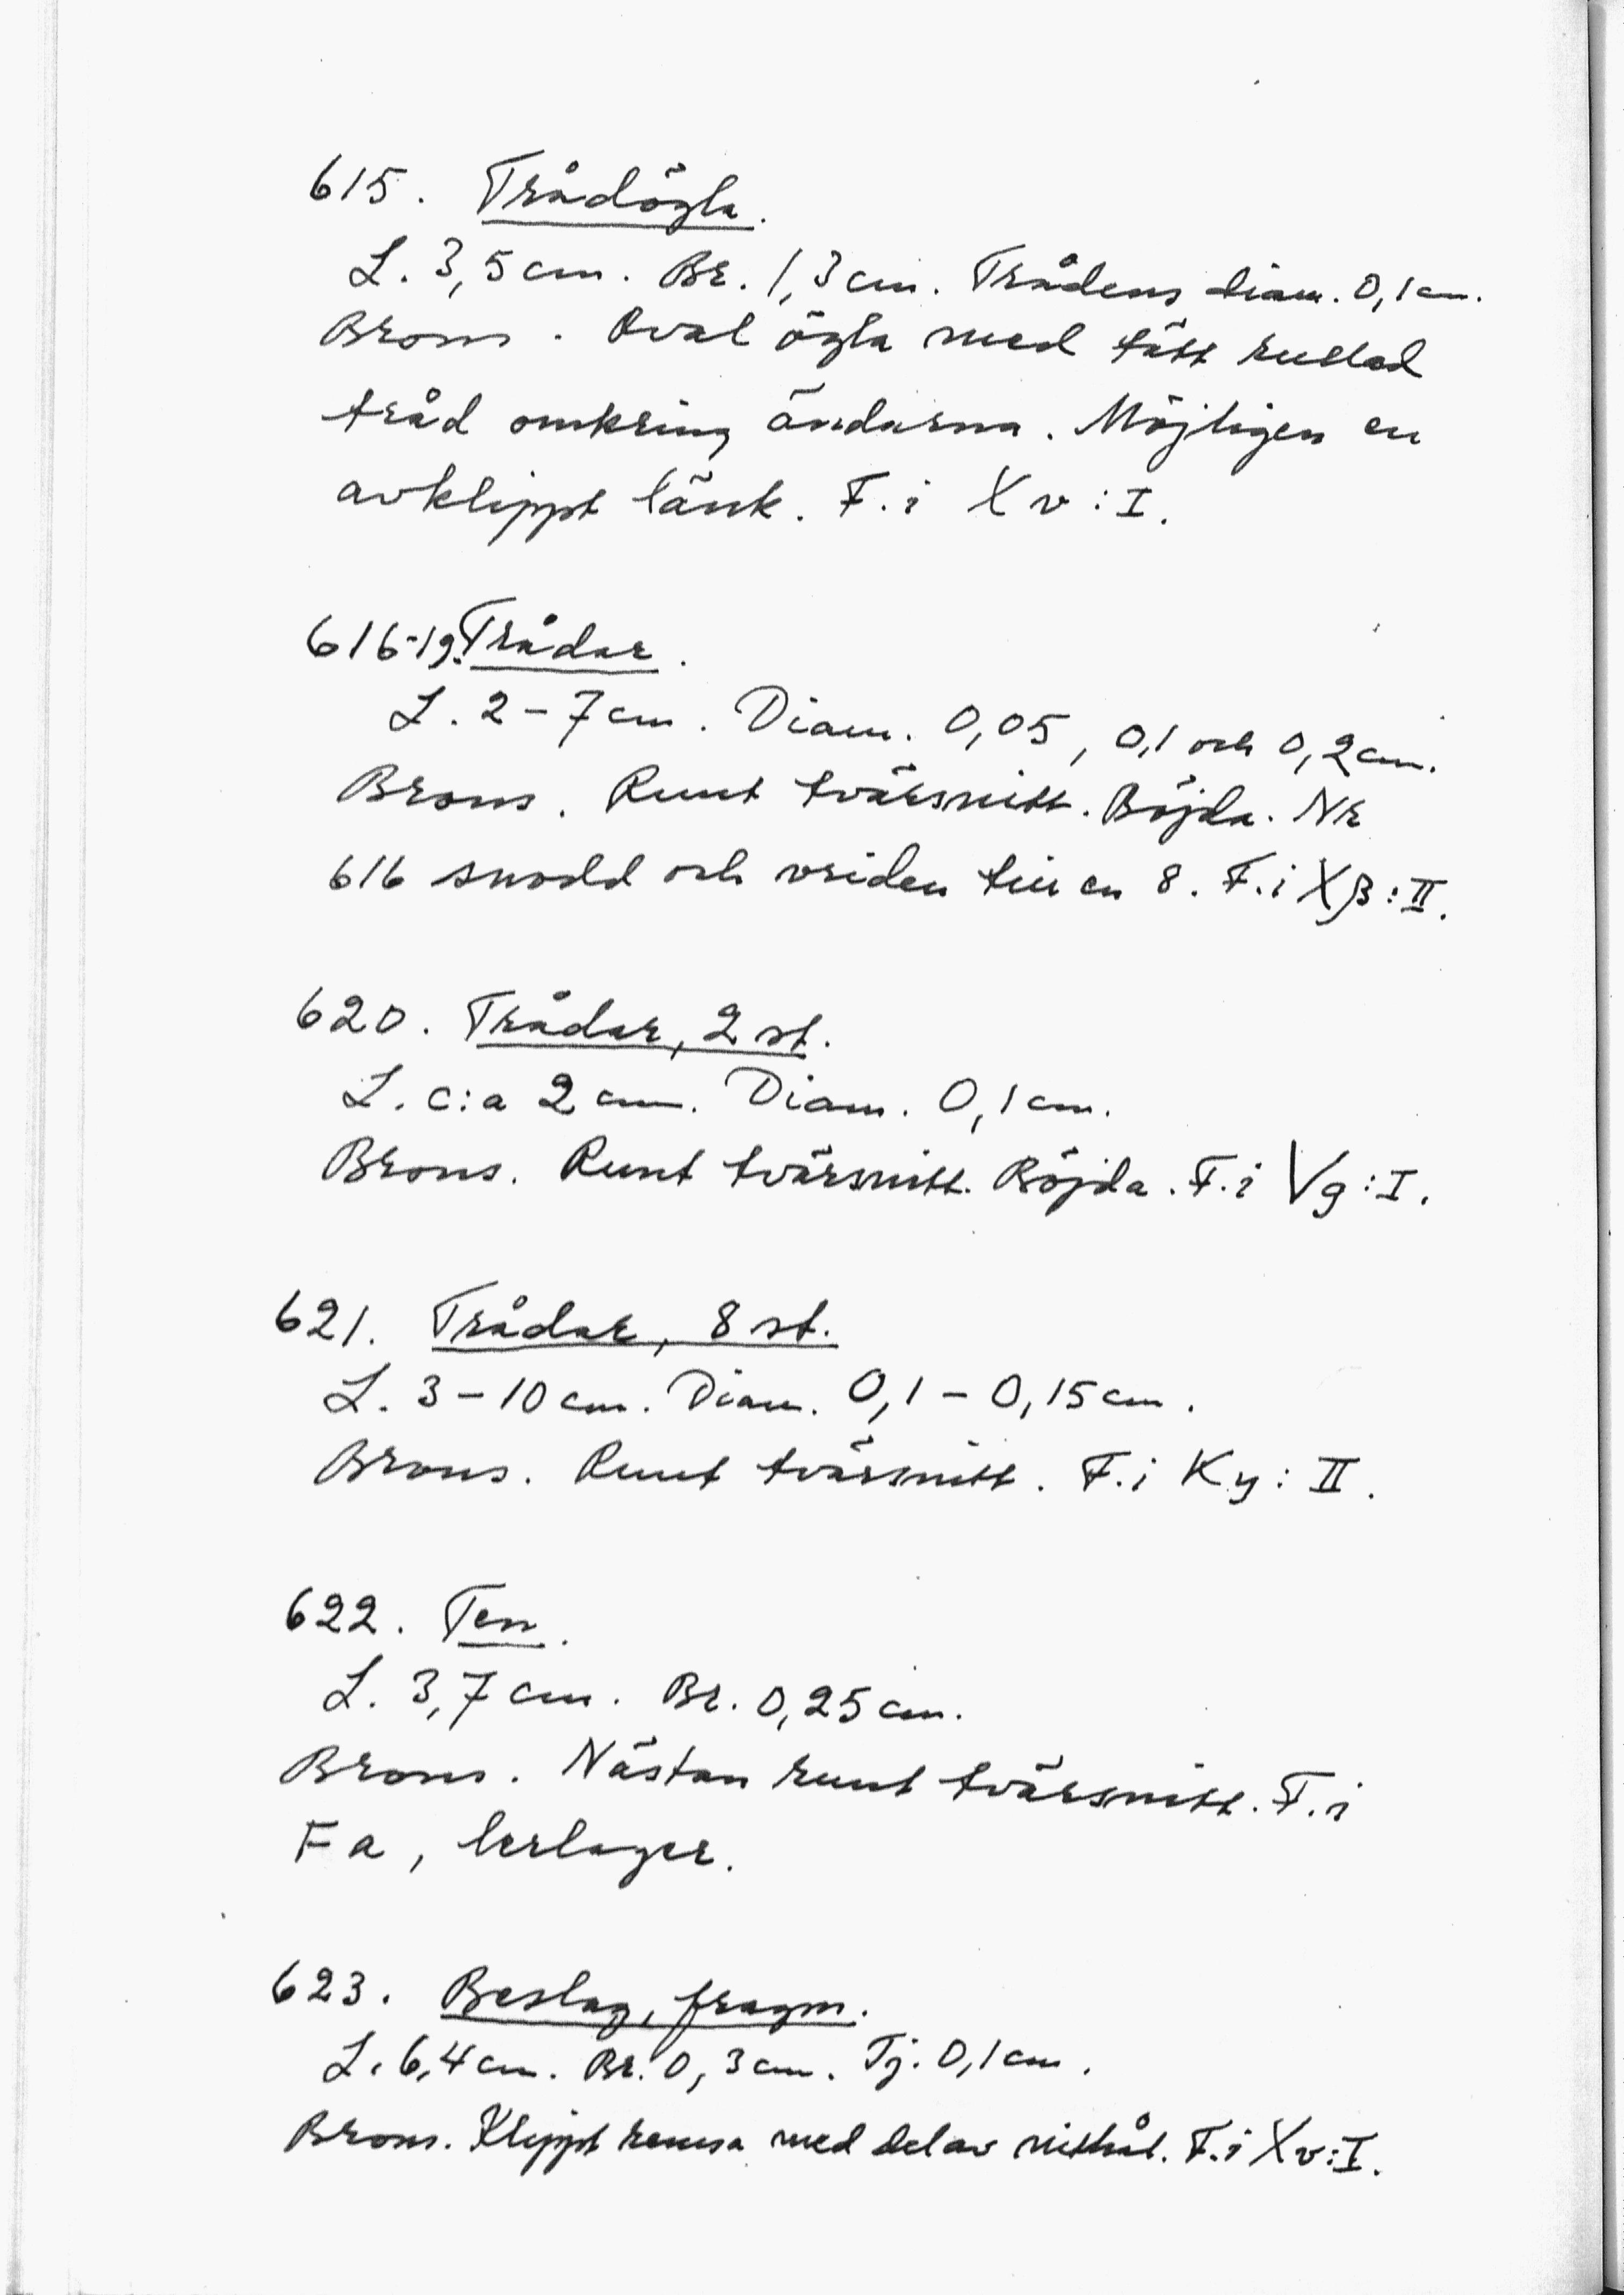 615. Trådögla.
L. 3,5 cm. Br. 1,3 cm. Trådens diam. 0,1 cm.
Brons. Oval ögla med tätt rullad
tråd omkring ändarna. Möjligen en
avklippt länk. F. i Xv:I.
616-19. Trådar.
L. 2-7 cm. Diam. 0,05, 0,1 och 0,2 cm.
Brons. Runt tvärsnitt. Böjda. Nr
616 snodd och vriden till en 8. F. i Xβ:II.
620. Trådar, 2 st.
L. c:a 2 cm. Diam. 0,1 cm.
Brons. Runt tvärsnitt. Böjda. F. i Vg:I.
621. Trådar, 8 st.
L. 3-10 cm. Diam. 0,1-0,15 cm.
Brons. Runt tvärsnitt. F. i Ky:II.
622. Ten.
L. 3,7 cm. Br. 0,25 cm.
Brons. Nästan runt tvärsnitt. F. i
Fa, lerlager.
623. Beslag, fragm.
L. 6,4 cm. Br. 0,3 cm. Tj. 0,1 cm.
Brons. Klippt remsa med del av nithål. F. i Xv:I.